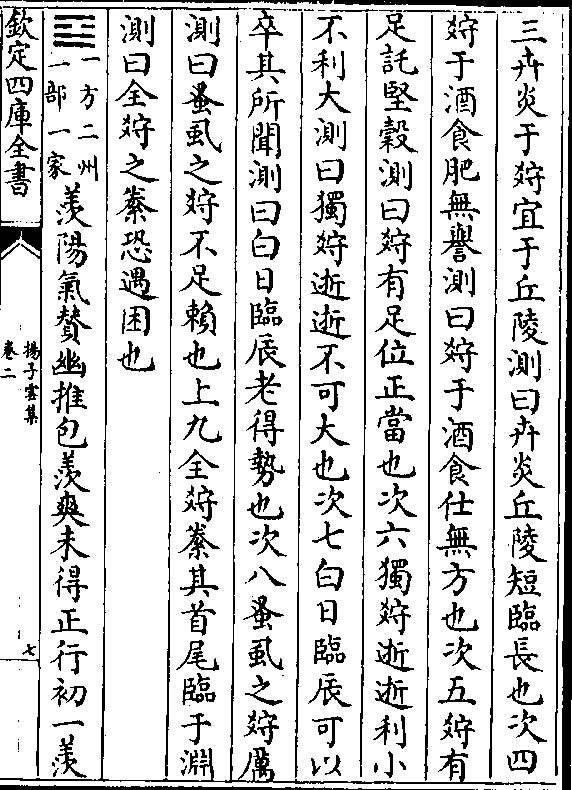 三卉炎于㺾宜于丘陵測曰卉炎丘陵短臨長也次四
㺾于酒食肥無譽測曰㺾于酒食仕無方也次五㺾有
足託堅穀測曰㺾有足位正當也次六獨㺾逝逝利小
不利大測曰獨㺾逝逝不可大也次七白日臨辰可以
卒其所聞測曰白日臨辰老得勢也次八蚤虱之㺾厲
測曰蚤虱之㺾不足賴也上九全㺾縈其首尾臨于淵
測曰全㺾之縈恐遇困也
一方二州
一部一家
羨陽氣贊幽推包羨爽未得正行初一羨
欽定四庫全書
揚子雲集
卷二
七